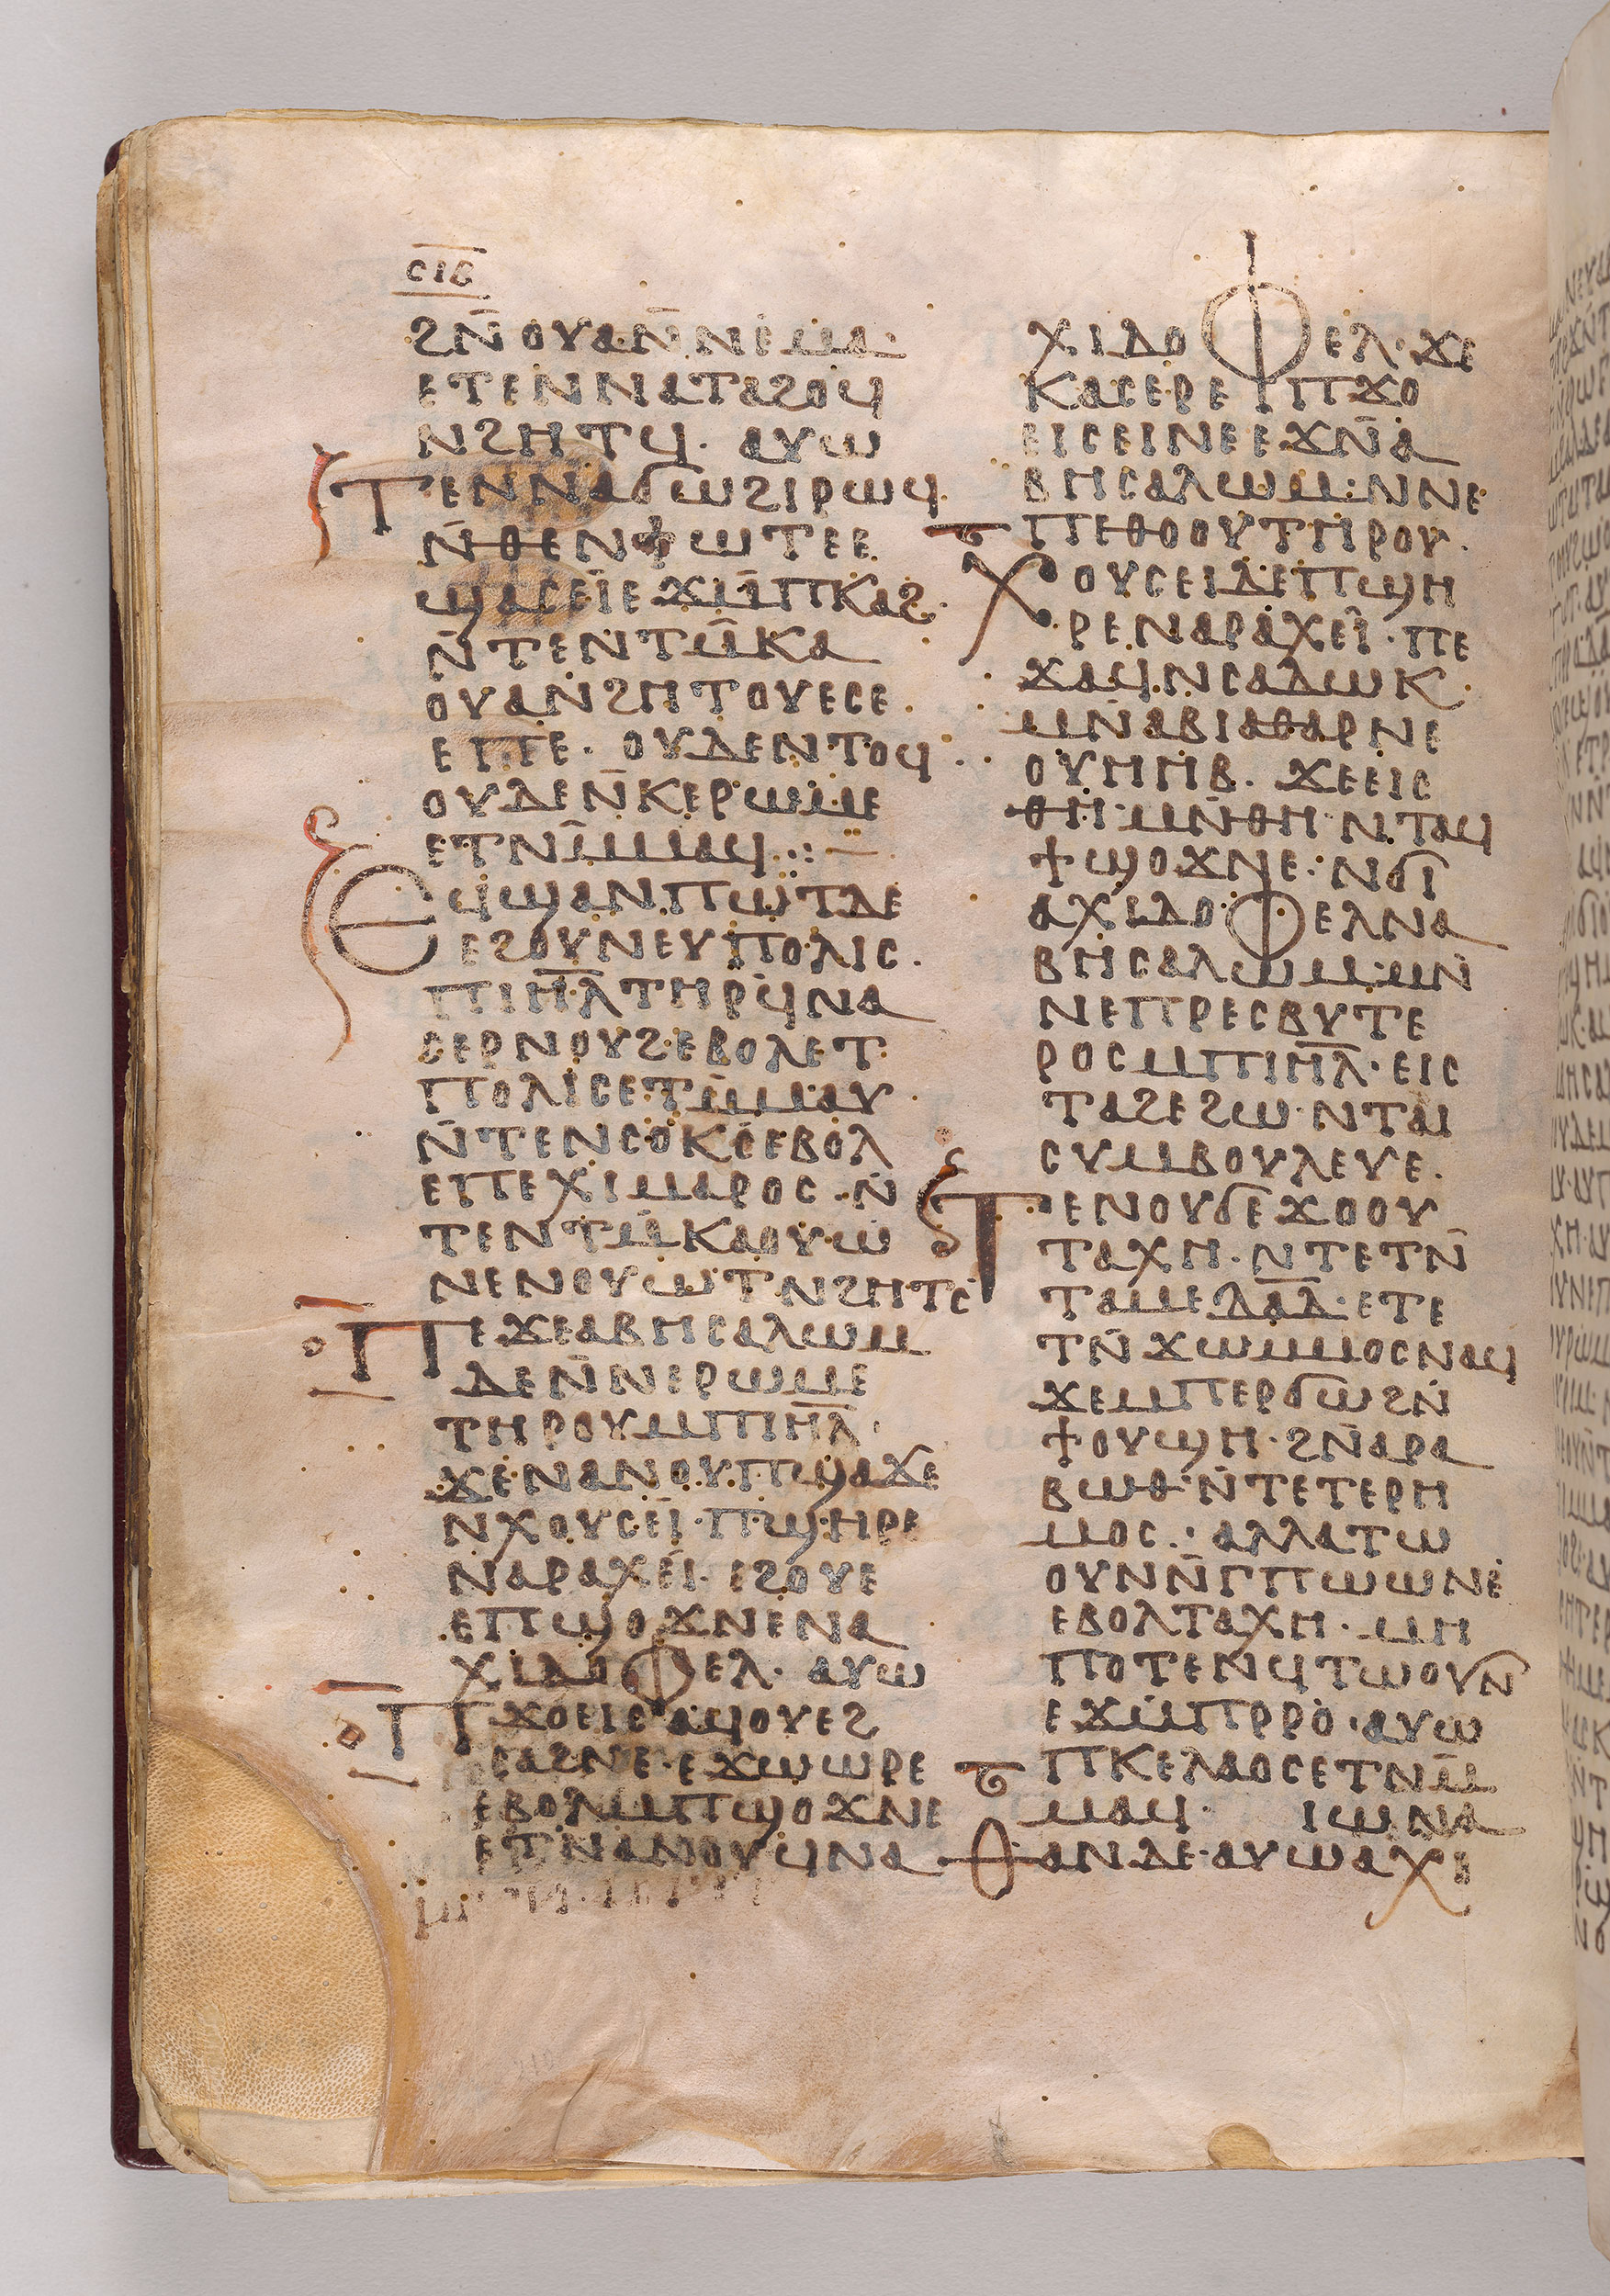 ⲥⲓⲃ
ϩⲛ̄ⲟⲩⲁⲛ̄ⲛⲉⲙⲁ
ⲉⲧⲉⲛⲛⲁⲧⲁϩⲟϥ
ⲛϩⲏⲧϥ· ⲁⲩⲱ
ⲧⲉⲛⲛⲁϭⲱϩⲓⲣⲱϥ
ⲛ̄ⲑⲉⲛϯⲱⲧⲉⲉ
ϣⲁⲥⲉⲓ̈ⲉϫⲙ̄ⲡⲕⲁϩ·
ⲛ̄ⲧⲉⲛⲧⲙ̄ⲕⲁ
ⲟⲩⲁⲛϩⲏⲧⲟⲩⲉⲥⲉ
ⲉⲡⲉ· ⲟⲩⲇⲉⲛⲧⲟϥ·
ⲟⲩⲇⲉⲛ̄ⲕⲉⲣⲱⲙⲉ
ⲉⲧⲛⲙ̄ⲙⲁϥ·:
ⲉϥϣⲁⲛⲡⲱⲧⲇⲉ
ⲉϩⲟⲩⲛⲉⲩⲡⲟⲗⲓⲥ·
ⲡⲓⲏ̄ⲗ̄ⲧⲏⲣϥⲛⲁ
ⲥⲉⲣⲛⲟⲩϩⲉⲃⲟⲗⲉⲧ
ⲡⲟⲗⲓⲥⲉⲧⲙ̄ⲙⲁⲩ·
ⲛ̄ⲧⲉⲛⲥⲟⲕⲥ̄ⲉⲃⲟⲗ
ⲉⲡⲉⲭⲓⲙⲁⲣⲟⲥ·ⲛ̄
ⲧⲉⲛⲧⲙ̄ⲕⲁⲟⲩⲱ
ⲛⲉⲛⲟⲩⲱⲧⲛϩⲏⲧⲥ̄
ⲡⲉϫⲉⲁⲃⲏⲥⲁⲗⲱⲙ
ⲇⲉⲛ̄ⲛⲉⲣⲱⲙⲉ
ⲧⲏⲣⲟⲩⲙⲡⲓⲏ̄ⲗ̄·
ϫⲉⲛⲁⲛⲟⲩⲡϣⲁϫⲉ
ⲛⲭⲟⲩⲥⲉⲓ̈·ⲡϣⲏⲣⲉ
ⲛⲁⲣⲁⲭⲉⲓ̈·ⲉϩⲟⲩⲉ
ⲉⲡϣⲟϫⲛⲉⲛⲁ
ⲭⲓⲇⲟⲫⲉⲗ· ⲁⲩⲱ
ⲡϫⲟⲉⲓⲥⲁϥⲟⲩⲉϩ
ⲥⲁϩⲛⲉ·ⲉϫⲱⲱⲣⲉ
ⲉⲃⲟⲗⲙⲡϣⲟϫⲛⲉ
ⲉⲧⲛⲁⲛⲟⲩϥⲛⲁ
ⲭⲓⲇⲟⲫⲉⲗ·ϫⲉ
ⲕⲁⲥⲉⲣⲉⲡϫⲟ
ⲉⲓⲥⲉⲓⲛⲉⲉϫⲛ̄ⲁ
ⲃⲏⲥⲁⲗⲱⲙ:ⲛⲛⲉ
ⲡⲉⲑⲟⲟⲩⲧⲏⲣⲟⲩ·
ⲭⲟⲩⲥⲉⲓⲇⲉⲡϣⲏ
ⲣⲉⲛⲁⲣⲁⲭⲉⲓ̈·ⲡⲉ
ϫⲁϥⲛⲥⲁⲇⲱⲕ·
ⲙⲛⲁⲃⲓⲁⲑⲁⲣⲛⲉ
ⲟⲩⲏⲏⲃ· ϫⲉⲉⲓⲥ
ⲑⲏ·ⲙⲛ̄ⲑⲏⲛⲧⲁϥ
ϯϣⲟϫⲛⲉ·ⲛϭⲓ
ⲁⲭⲓⲇⲟⲫⲉⲗⲛⲁ
ⲃⲏⲥⲁⲗⲱⲙ:ⲙⲛ̄
ⲛⲉⲡⲣⲉⲥⲃⲩⲧⲉ
ⲣⲟⲥⲙⲡⲓⲏ̄ⲗ̄·ⲉⲓⲥ
ⲧⲁϩⲉϩⲱ·ⲛⲧⲁⲓ
ⲥⲩⲙⲃⲟⲩⲗⲉⲩⲉ·
ⲧⲉⲛⲟⲩϭⲉϫⲟⲟⲩ
ⲧⲁⲭⲏ·ⲛⲧⲉⲧⲛ̄
ⲧⲁⲙⲉⲇⲁ̄ⲇ̄·ⲉⲧⲉ
ⲧⲛ̄ϫⲱⲙⲙⲟⲥⲛⲁϥ
ϫⲉⲙⲡⲉⲣϭⲱϩⲛ̄
ϯⲟⲩϣⲏ·ϩⲛ̄ⲁⲣⲁ
ⲃⲱⲑ·ⲛ̄ⲧⲉⲧⲉⲣⲏ
ⲙⲟⲥ·:ⲁⲗⲗⲁⲧⲱ
ⲟⲩⲛⲛ̄ⲅⲡⲱⲱⲛⲉ
ⲉⲃⲟⲗⲧⲁⲭⲏ·ⲙⲏ
ⲡⲟⲧⲉⲛϥⲧⲱⲟⲩⲛ
ⲉϫⲙ̄ⲡⲣⲣⲟ·ⲁⲩⲱ
ⲡⲕⲉⲗⲁⲟⲥⲉⲧⲛⲙ̄
ⲙⲁϥ· ⲓⲱⲛⲁ
ⲑⲁⲛⲇⲉ·ⲁⲩⲱⲁⲭⲓ